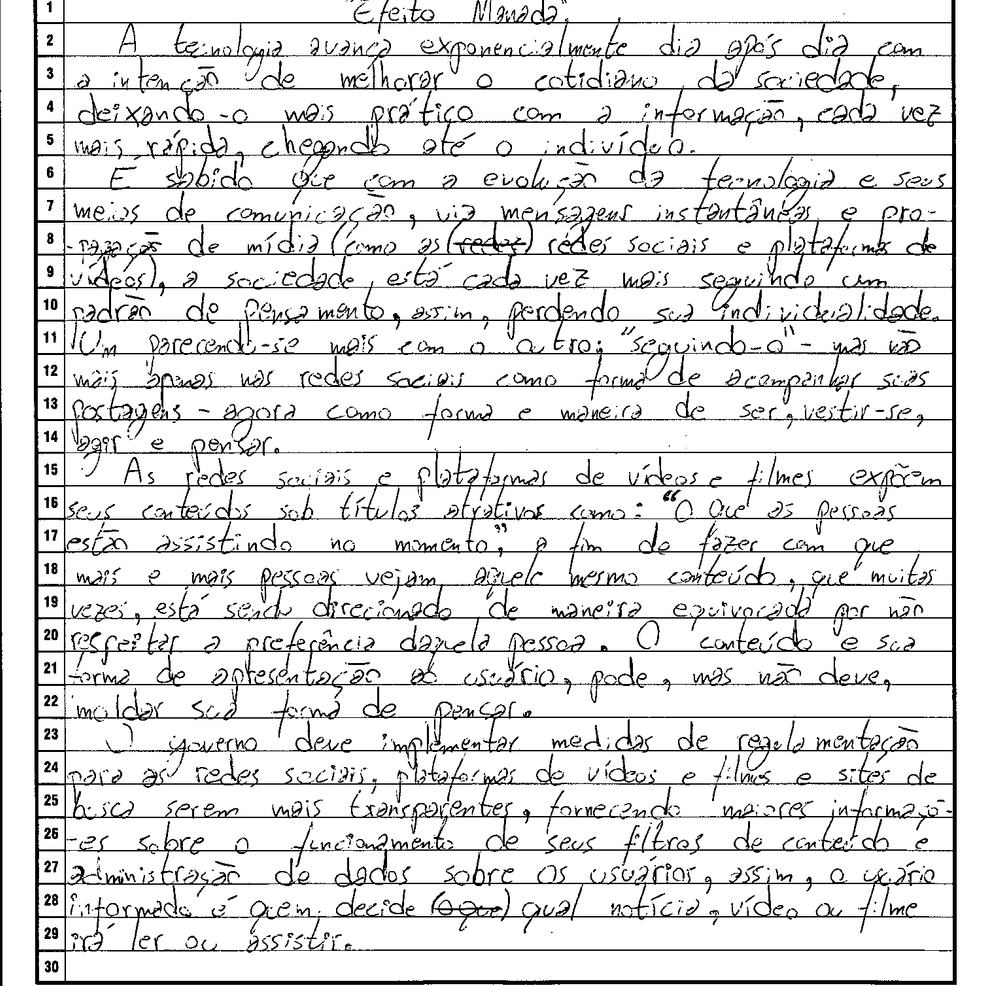 1 "Efeito Manada".
2 A tecnologia avança exponencialmente dia após dia com
3 a intenção de melhorar o cotidiano da sociedade,
4 deixando-o mais prático com a informação, cada vez
5 mais rápida, chegando até o indivíduo.
6 É sabido que com a evolução da tecnologia e seus
7 meios de comunicação, via mensagens instantâneas e pro-
8 -pagação de mídia (como as (redes) redes sociais e plataformas de
9 vídeos), a sociedade está cada vez mais seguindo um
10 padrão de pensamento, assim, perdendo sua individualidade.
11 Um parecendo-se mais com o outro; "seguindo-o" - mas não
12 mais apenas nas redes sociais como forma de acompanhar suas
13 postagens - agora como forma e maneira de ser, vestir-se,
14 agir e pensar.
15 As redes sociais e plataformas de vídeos e filmes expõem
16 seus conteúdos sob títulos atrativos como: "O que as pessoas
17 estão assistindo no momento", a fim de fazer com que
18 mais e mais pessoas vejam aquele mesmo conteúdo, que muitas
19 vezes, está sendo direcionado de maneira equivocada por não
20 respeitar a preferência daquela pessoa. O conteúdo e sua
21 forma de apresentação ao usuário, pode, mas não deve,
22 moldar sua forma de pensar.
23 O governo deve implementar medidas de regulamentação
24 para as redes sociais, plataformas de vídeos e filmes e sites de
25 busca serem mais transparentes, fornecendo maiores informaçõ-
26 -es sobre o funcionamento de seus filtros de conteúdo e
27 administração de dados sobre os usuários, assim, o usário
28 informado é quem decide (o que) qual notícia, vídeo ou filme
29 irá ler ou assistir.
30